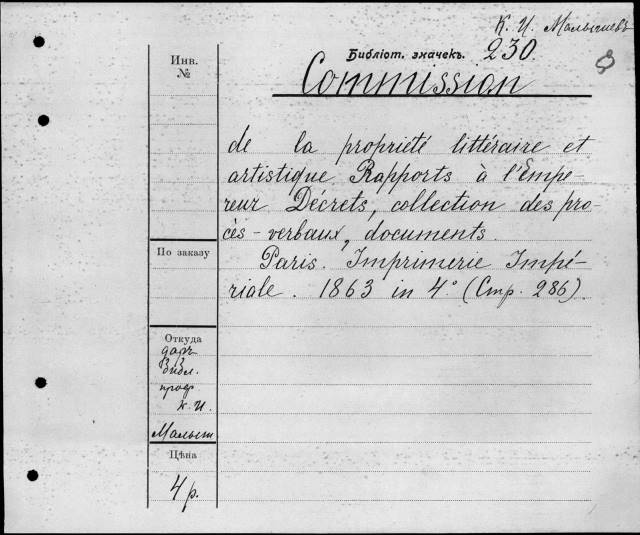 К. И. Малышевъ
Библіот. значекъ. 230.
Commission
Инв.
№
de la propriété littéraire et
artistique Rapports à l'Empe-
reur Décrets, collection des pro
cès-verbaux, documents.
Paris. Imprimerie Impé-
riale. 1863 in 4° (Стр. 286).
По заказу
Откуда
даръ
библ.
проф
К. И.
Малыш
Цѣна
4 р.